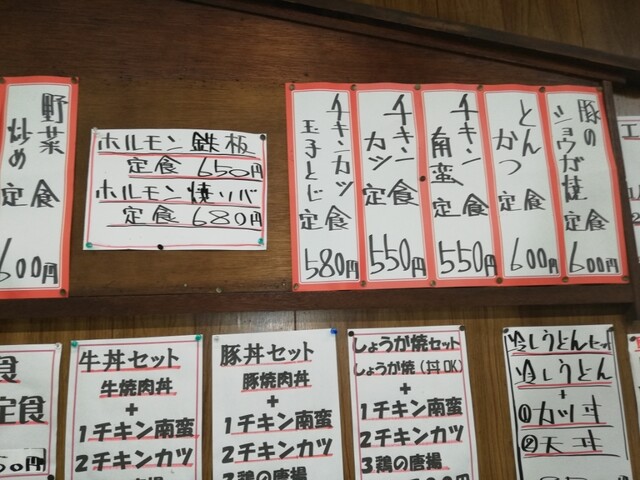 野菜炒め定食
600円
ホルモン鉄板
定食 650円
ホルモン焼ソバ
定食 680円
チキンカツ
玉子とじ
定食
580円
チキンカツ定食
550円
チキン南蛮定食
550円
とんかつ定食
600円
豚の
ショウガ焼定食
600円
食
定食
50円
牛丼セット
牛焼肉丼
+
1チキン南蛮
2チキンカツ
豚丼セット
豚焼肉丼
+
1チキン南蛮
2チキンカツ
3鶏の唐揚
しょうが焼セット
しょうが焼(丼OK)
+
1チキン南蛮
2チキンカツ
3鶏の唐揚
冷しうどんセット
冷しうどん
+
①カツ丼
②天丼